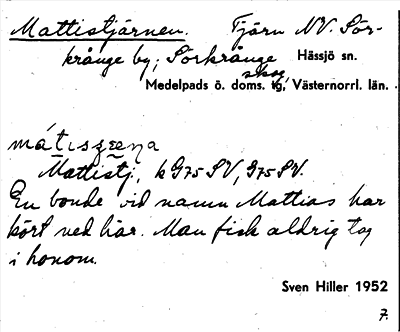 Mattistjärnen. Tjärn NV. Sör-
krånge by; Sörkrånge Hässjö sn.
skog
Medelpads ö. doms. tg, Västernorrl. län.
Mattistj, k G75 SV, 975 SV.
En bonde vid namn Mattias har
kört ned här. Man fick aldrig tag
i honom.
Sven Hiller 1952
7.